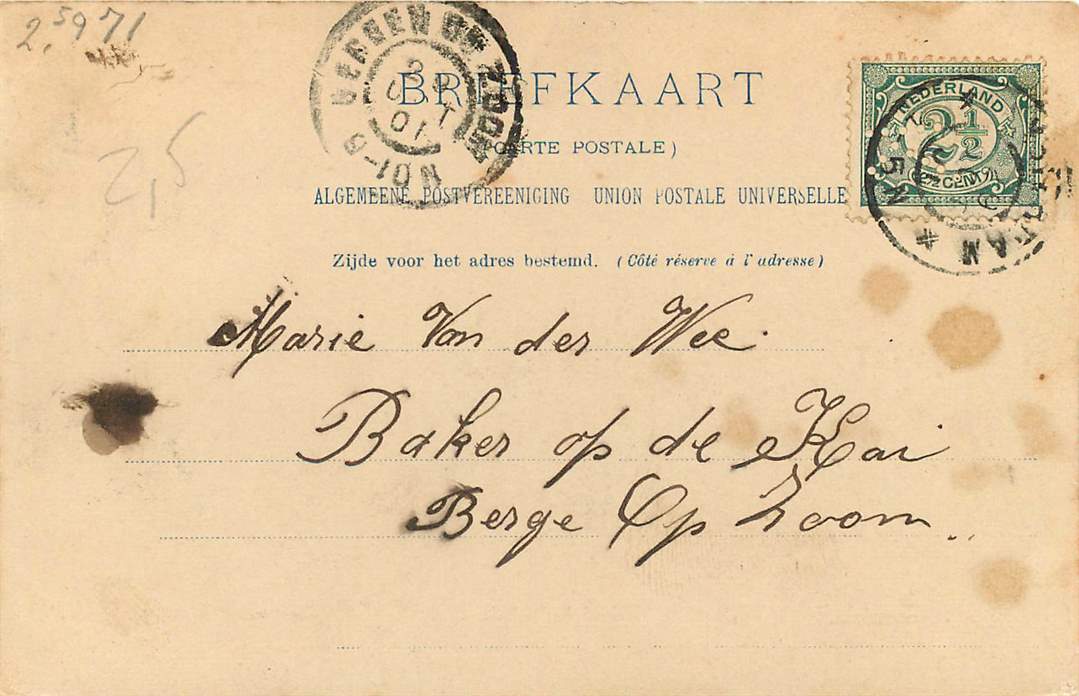 2.5971
2,5
BERGEN OP ZOOM
BRIEFKAART
(CARTE POSTALE)
ALGEMEENE POSTVEREENIGING UNION POSTALE UNIVERSELLE
NEDERLAND
2½
Zijde voor het adres bestemd. (Côté réservé à l'adresse)
Marie Van der Wee.
Baker op de Kai
Berge Op Zoom